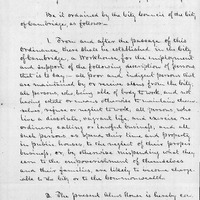 Be it ordained by the City Council of the City
of Cambridge, as follows:
1. From and after the passage of this
ordinance, there shall be established in the City
of Cambridge, a Workhouse, for the employment
and support of the following description of persons,
that is to say: all poor and indigent persons that
are maintained by or receive alms from the city;
all persons who being able of body to work, and not
having estate or means otherwise to maintain themselves
refuse or neglect to work; all persons who
live a dissolute, vagrant life, and exercise no
ordinary calling or lawful business; and all
such persons as spend their time and property
in public houses, to the neglect of their proper
business, or by otherwise misspending what they
earn to the impoverishment of themselves
and their families, are likely to become chargeable
to the city, or to the Commonwealth.
2. The present Alms House is hereby